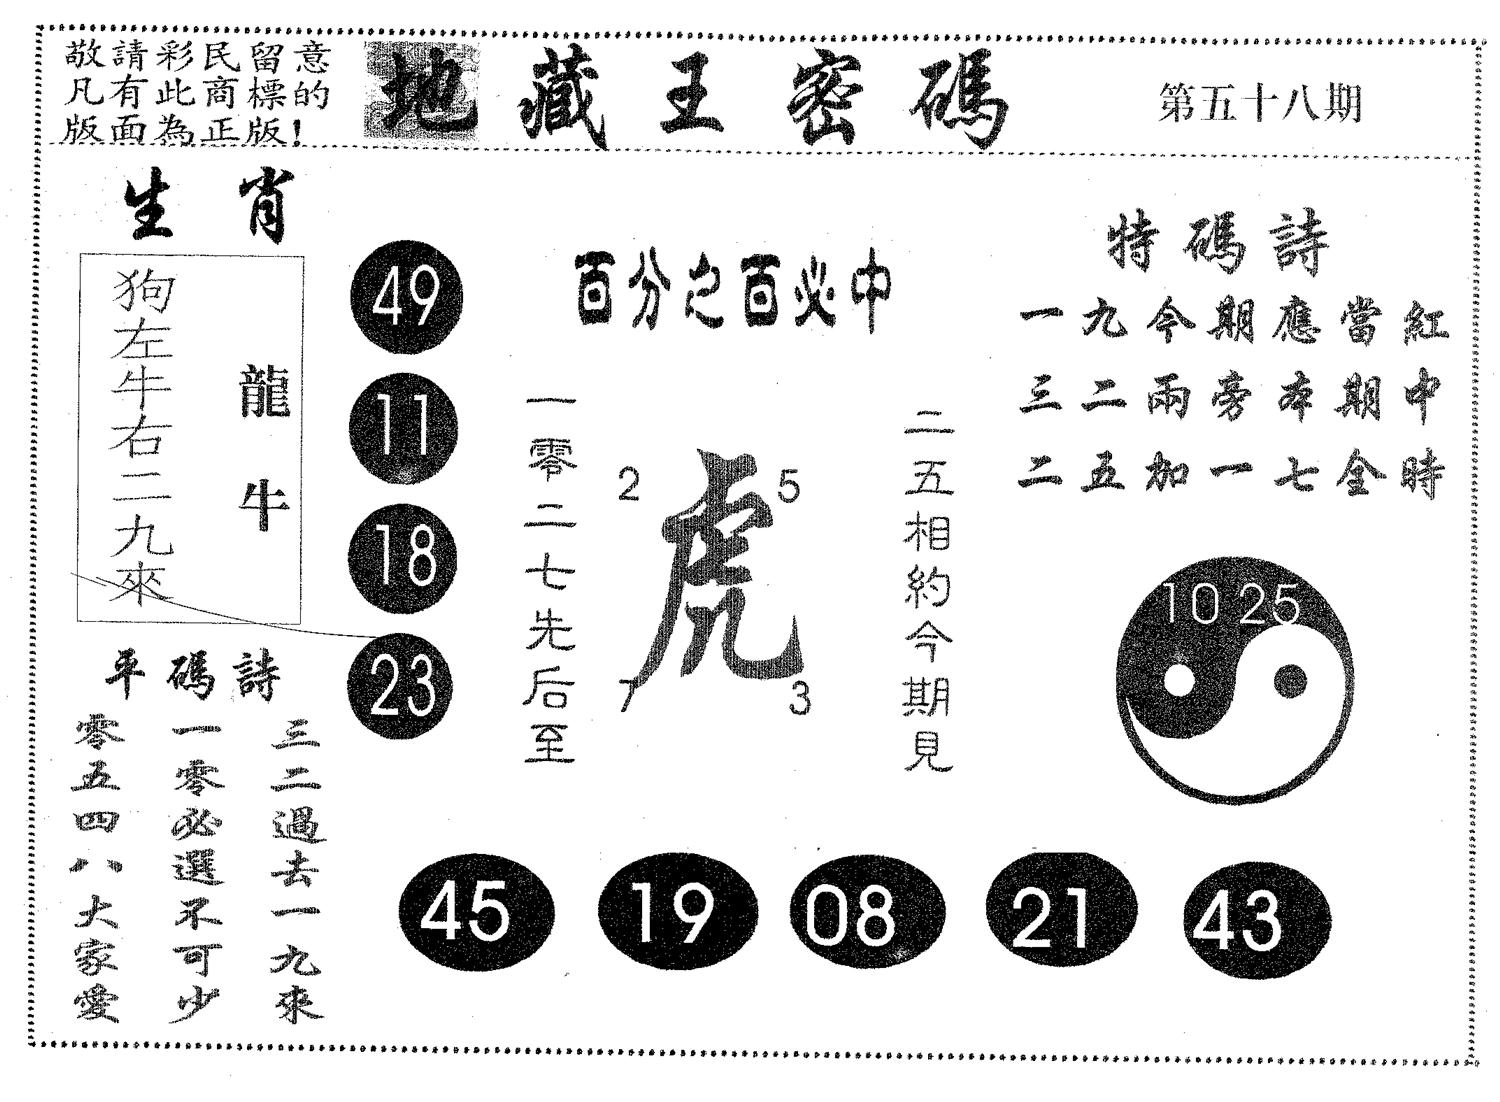 敬請彩民留意
凡有此商標的
版面為正版!
地藏王密碼
第五十八期
生肖
狗左牛右二九來
龍牛
49
11
18
23
百分之百必中
一零二七先后至
2
5
虎
7
3
二五相約今期見
特碼詩
一九今期應當紅
三二兩旁本期中
二五加一七全時
10 25
平碼詩
三二過去一九來
一零必選不可少
零五四八大家愛
45
19
08
21
43